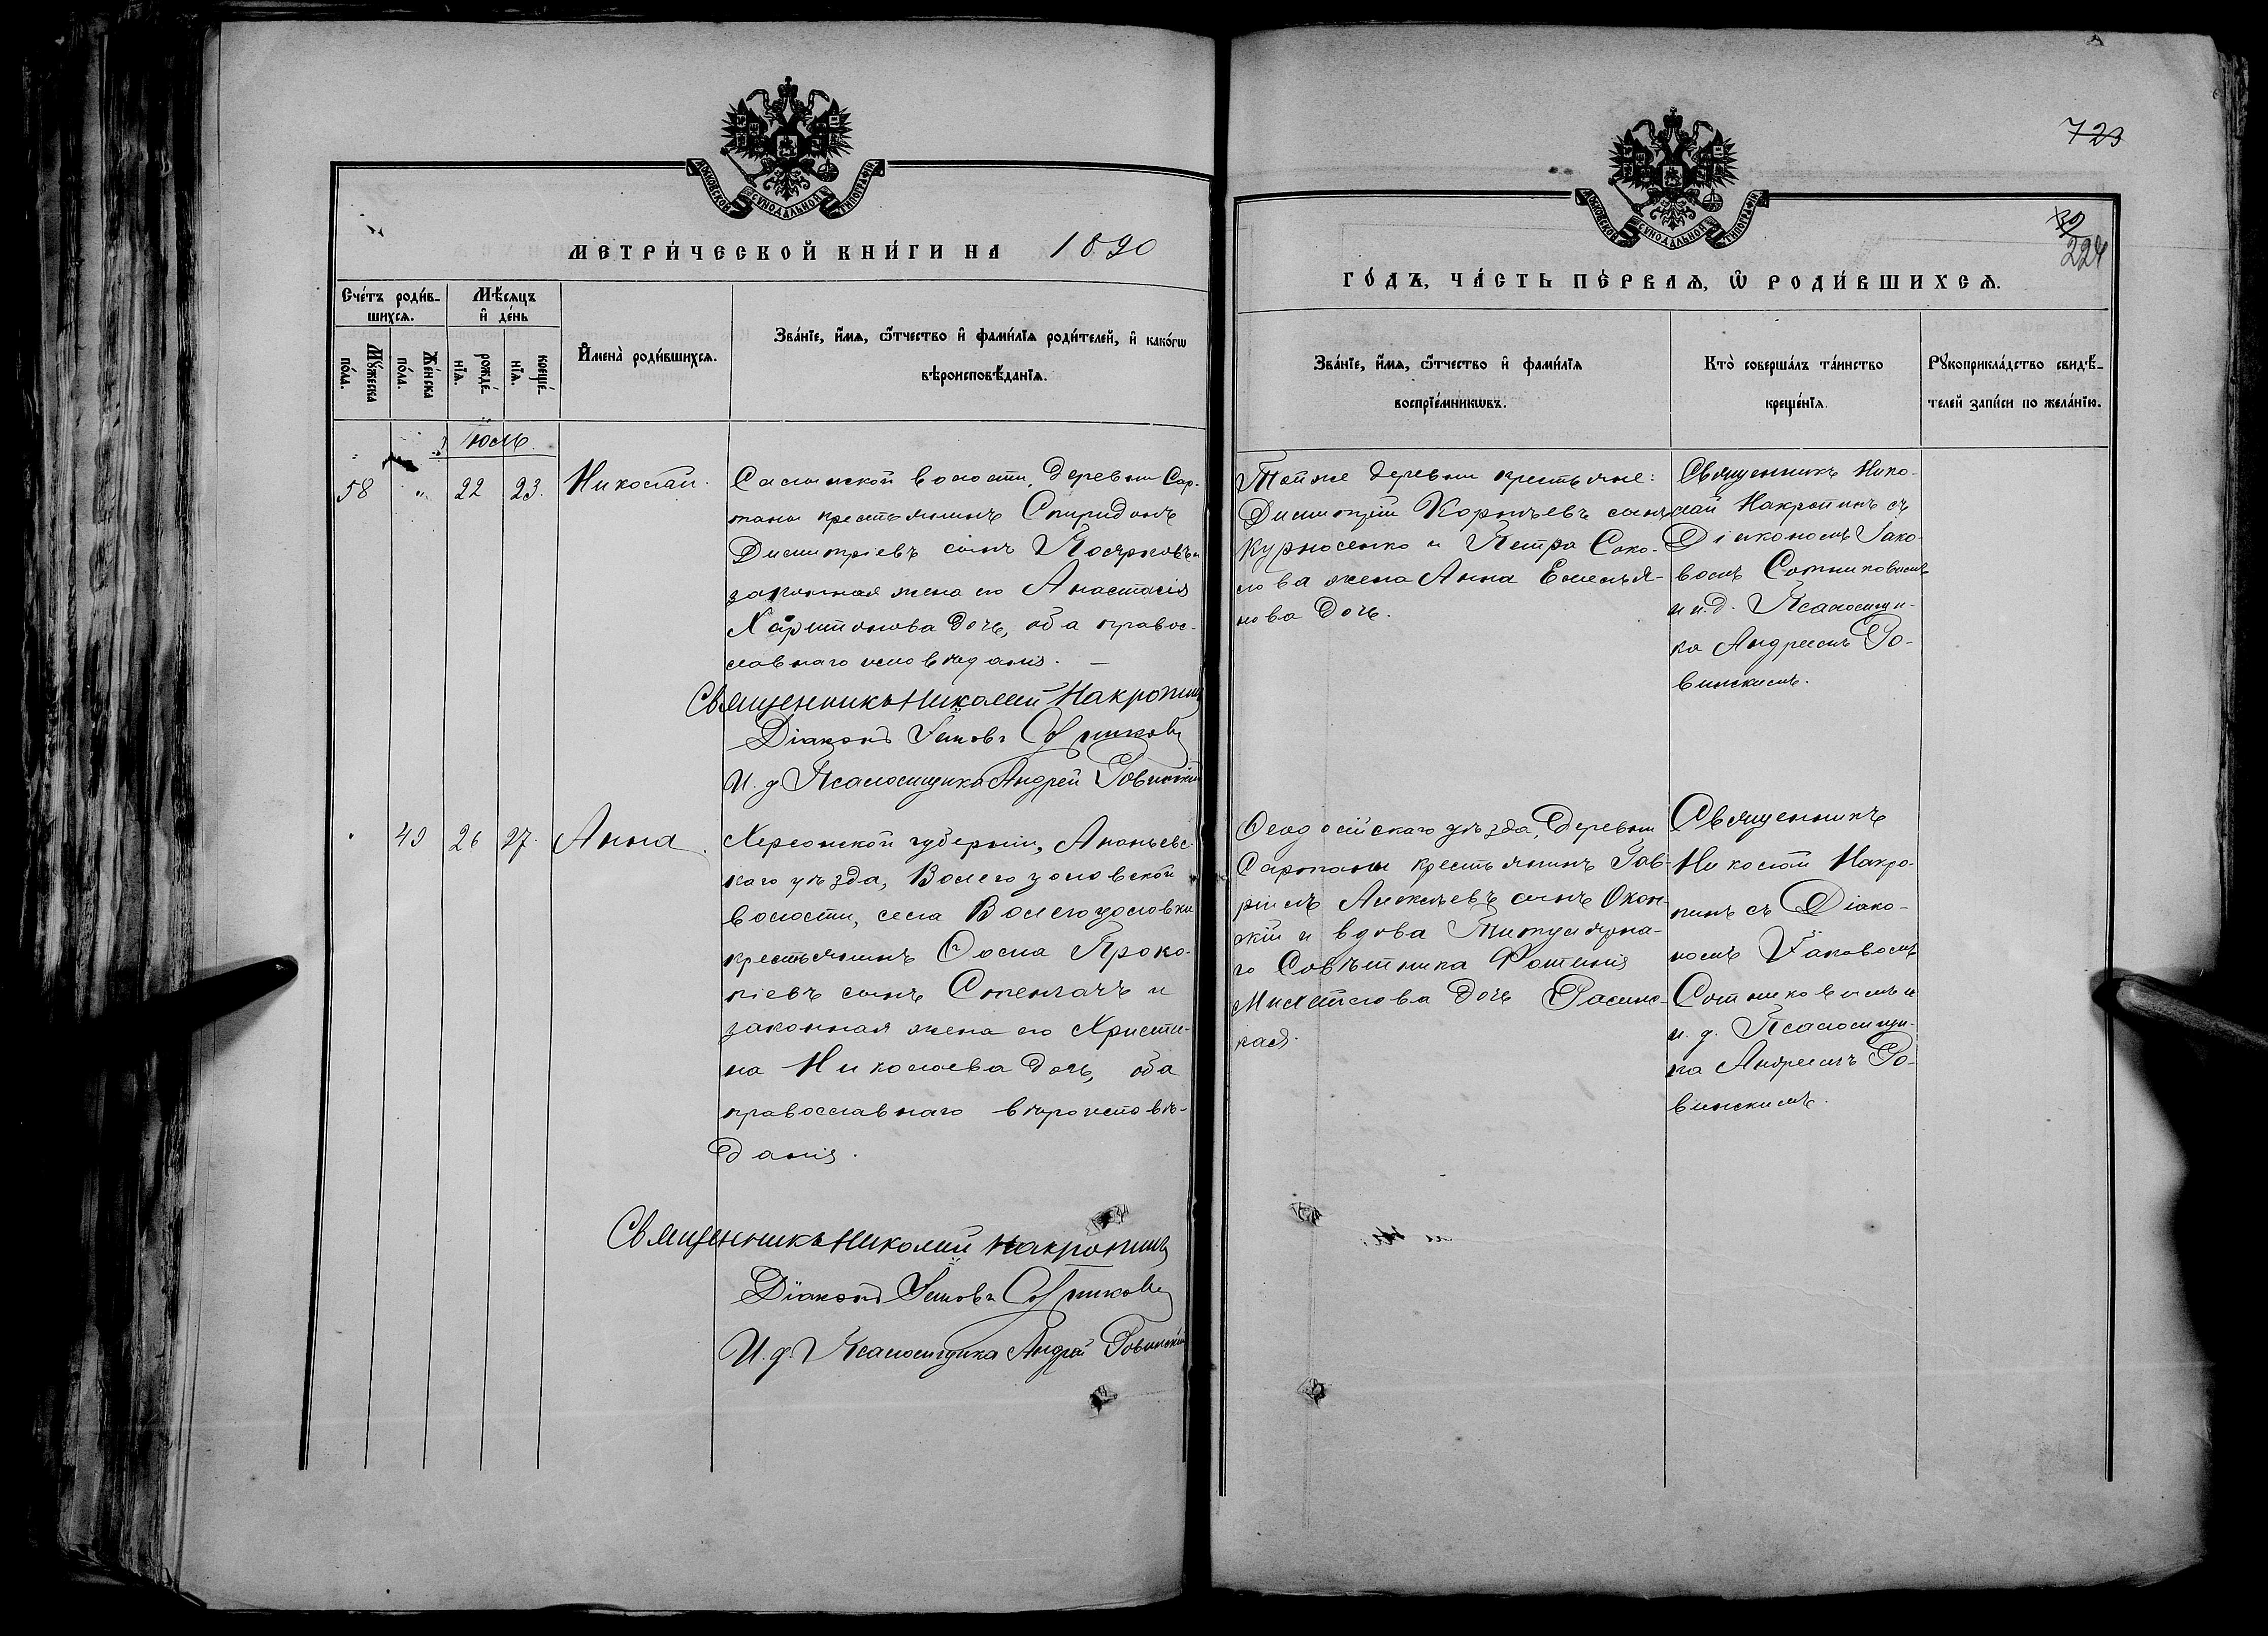 723
224
МЕТРИ́ЧЕСКОЙ КНИ́ГИ НА 1890
ГО́ДЪ, ЧА́СТЬ ПЕ́РВАѦ, Ѽ РОДИ́ВШИХСѦ.
МОСКОВСКОЙ СѴНОДАЛЬНОЙ ТИПОГРАФІИ
МОСКОВСКОЙ СѴНОДАЛЬНОЙ ТИПОГРАФІИ
Сче́тъ роди́в-
шихсѧ.
Мѣ́сѧцъ
и҆ де́нь
Мꙋ́жеска
по́ла.
Же́нска
по́ла.
рожде́-
нїѧ.
креще́-
нїѧ.
И҆мена̀ роди́вшихсѧ.
Зва́нїе, и҆́мѧ, ѻ҆́тчество и҆ фами́лїѧ роди́телей, и҆ како́гѡ
вѣроисповѣ́данїѧ.
Зва́нїе, и҆́мѧ, ѻ҆́тчество и҆ фами́лїѧ
воспрїе́мникѡвъ.
Кто̀ соверша́лъ та́инство
креще́нїѧ.
Рꙋкоприкла́дство свидѣ́-
телей за́писи по жела́нїю.
Іюль.
58 " 22 23. Николай.
Салынской волости, деревни Сар-
таны крестьянинъ Спиридонъ
Димитріевъ сынъ и
законная жена его Анастасія
Харитонова дочь, оба правос-
лавнаго исповѣданія. —
Священникъ Николай Накропинъ
Діаконъ Іаковъ Сотниковъ
И. д. Псаломщика Андрей Ровинскій
Тойже деревни крестьяне:
Димитрій Корнѣевъ сынъ
Курносенко и Петра Соко-
лова жена Анна Емелья-
нова дочь.
Священникъ Нико-
лай Накропинъ съ
Діакономъ Іако-
вомъ Сотниковымъ
и и.д. Псаломщи-
ка Андреемъ Ро-
винскимъ.
49 26 27. Анна.
Херсонской губерніи, Ананьевс-
каго уѣзда, Волегоцоловской
волости, села Волегоцоловки
крестьянинъ Ѳома Проко-
піевъ сынъ и
законная жена его Христи-
на Николаева дочь, оба
православнаго вѣроисповѣ-
данія.
Священникъ Николай Накропинъ
Діаконъ Іаковъ Сотниковъ
И. д. Псаломщика Андрей Ровинскій
Ѳеодосійскаго уѣзда, деревни
Сартаны крестьянинъ Гав-
ріилъ Алексѣевъ сынъ
и вдова Титулярна-
го Совѣтника Фотинія
Михайлова дочь
Священникъ
Николай Накро-
пинъ съ Діако-
номъ Іаковомъ
Сотниковымъ и
и. д. Псаломщи-
ка Андреемъ Ро-
винскимъ.